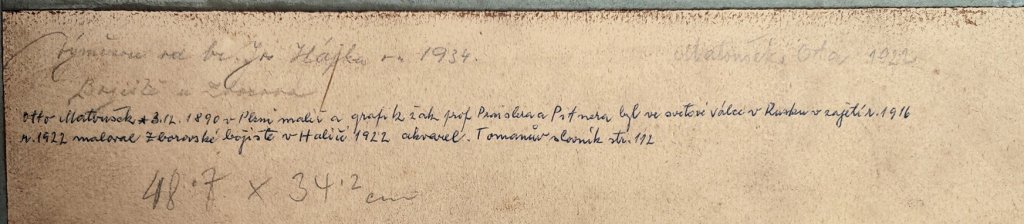 Výměnou od br. Jos Hájka r. 1934. Matoušek, Ota 1922
Bojiště u Zborova
Otto Matoušek * 3.12. 1890 v Plzni malíř a grafik žák prof. Preislera a Pirnera byl ve světové válce v Rusku v zajetí r. 1916
r. 1922 maloval Zborovské bojiště v Haliči 1922 akvarel. Tomanův slovník str. 112
48.7 x 34.2 cm